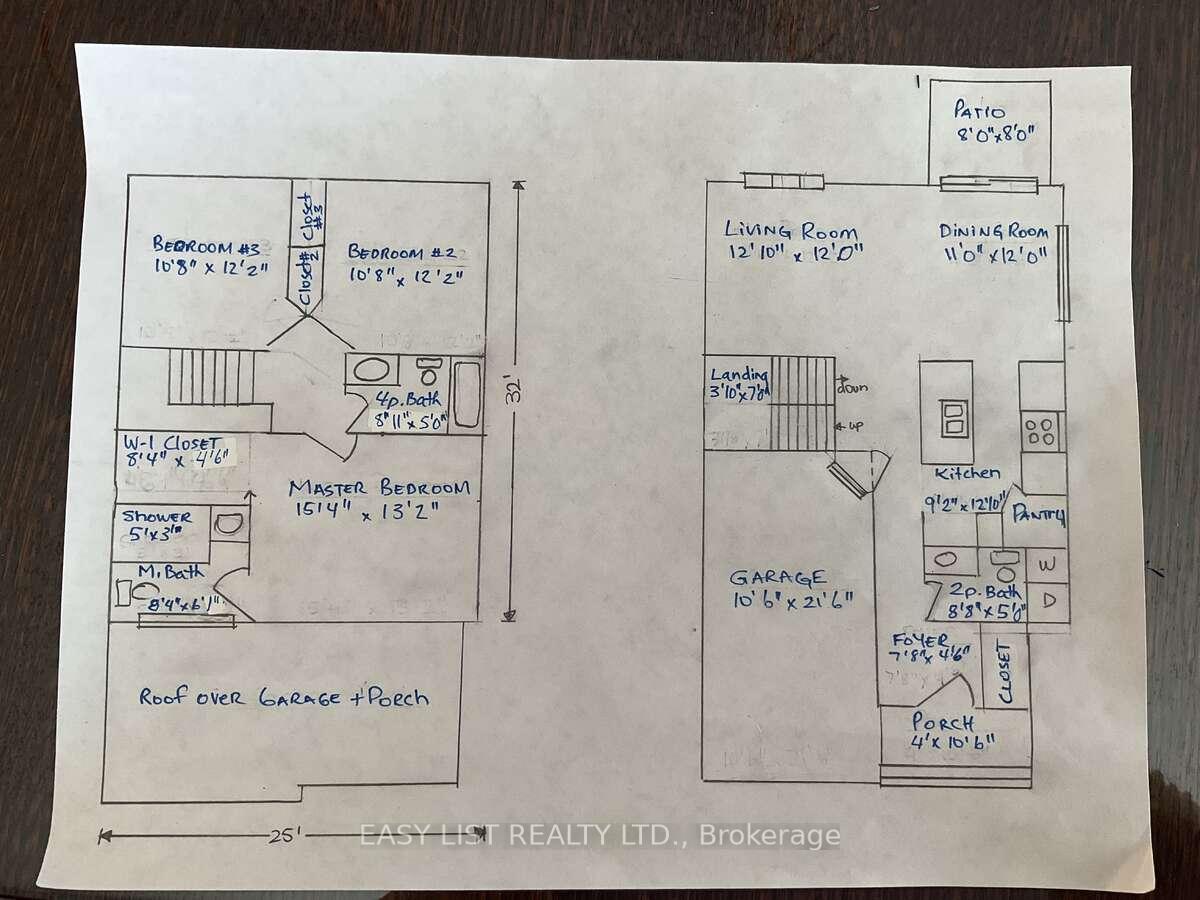 BEDROOM #3
10'8" x 12'2"
Closet #3
Closet #2
BEDROOM #2
10'8" x 12'2"
4p. Bath
8'11" x 5'0"
32'
W-I CLOSET
8'4" x 4'6"
MASTER BEDROOM
15'4" x 13'2"
SHOWER
5'x3'
M. Bath
8'4" x 6'1"
ROOF OVER GARAGE + PORCH
25'
PATIO
8'0" x 8'0"
LIVING ROOM
12'10" x 12'0"
DINING ROOM
11'0" x 12'0"
Landing
3'10" x 7'0"
down
up
Kitchen
9'2" x 12'0"
PANTRY
GARAGE
10'6" x 21'6"
W
D
2p. Bath
8'8" x 5'0"
FOYER
7'8" x 4'6"
CLOSET
PORCH
4' x 10'6"
EASY LIST REALTY LTD., Brokerage